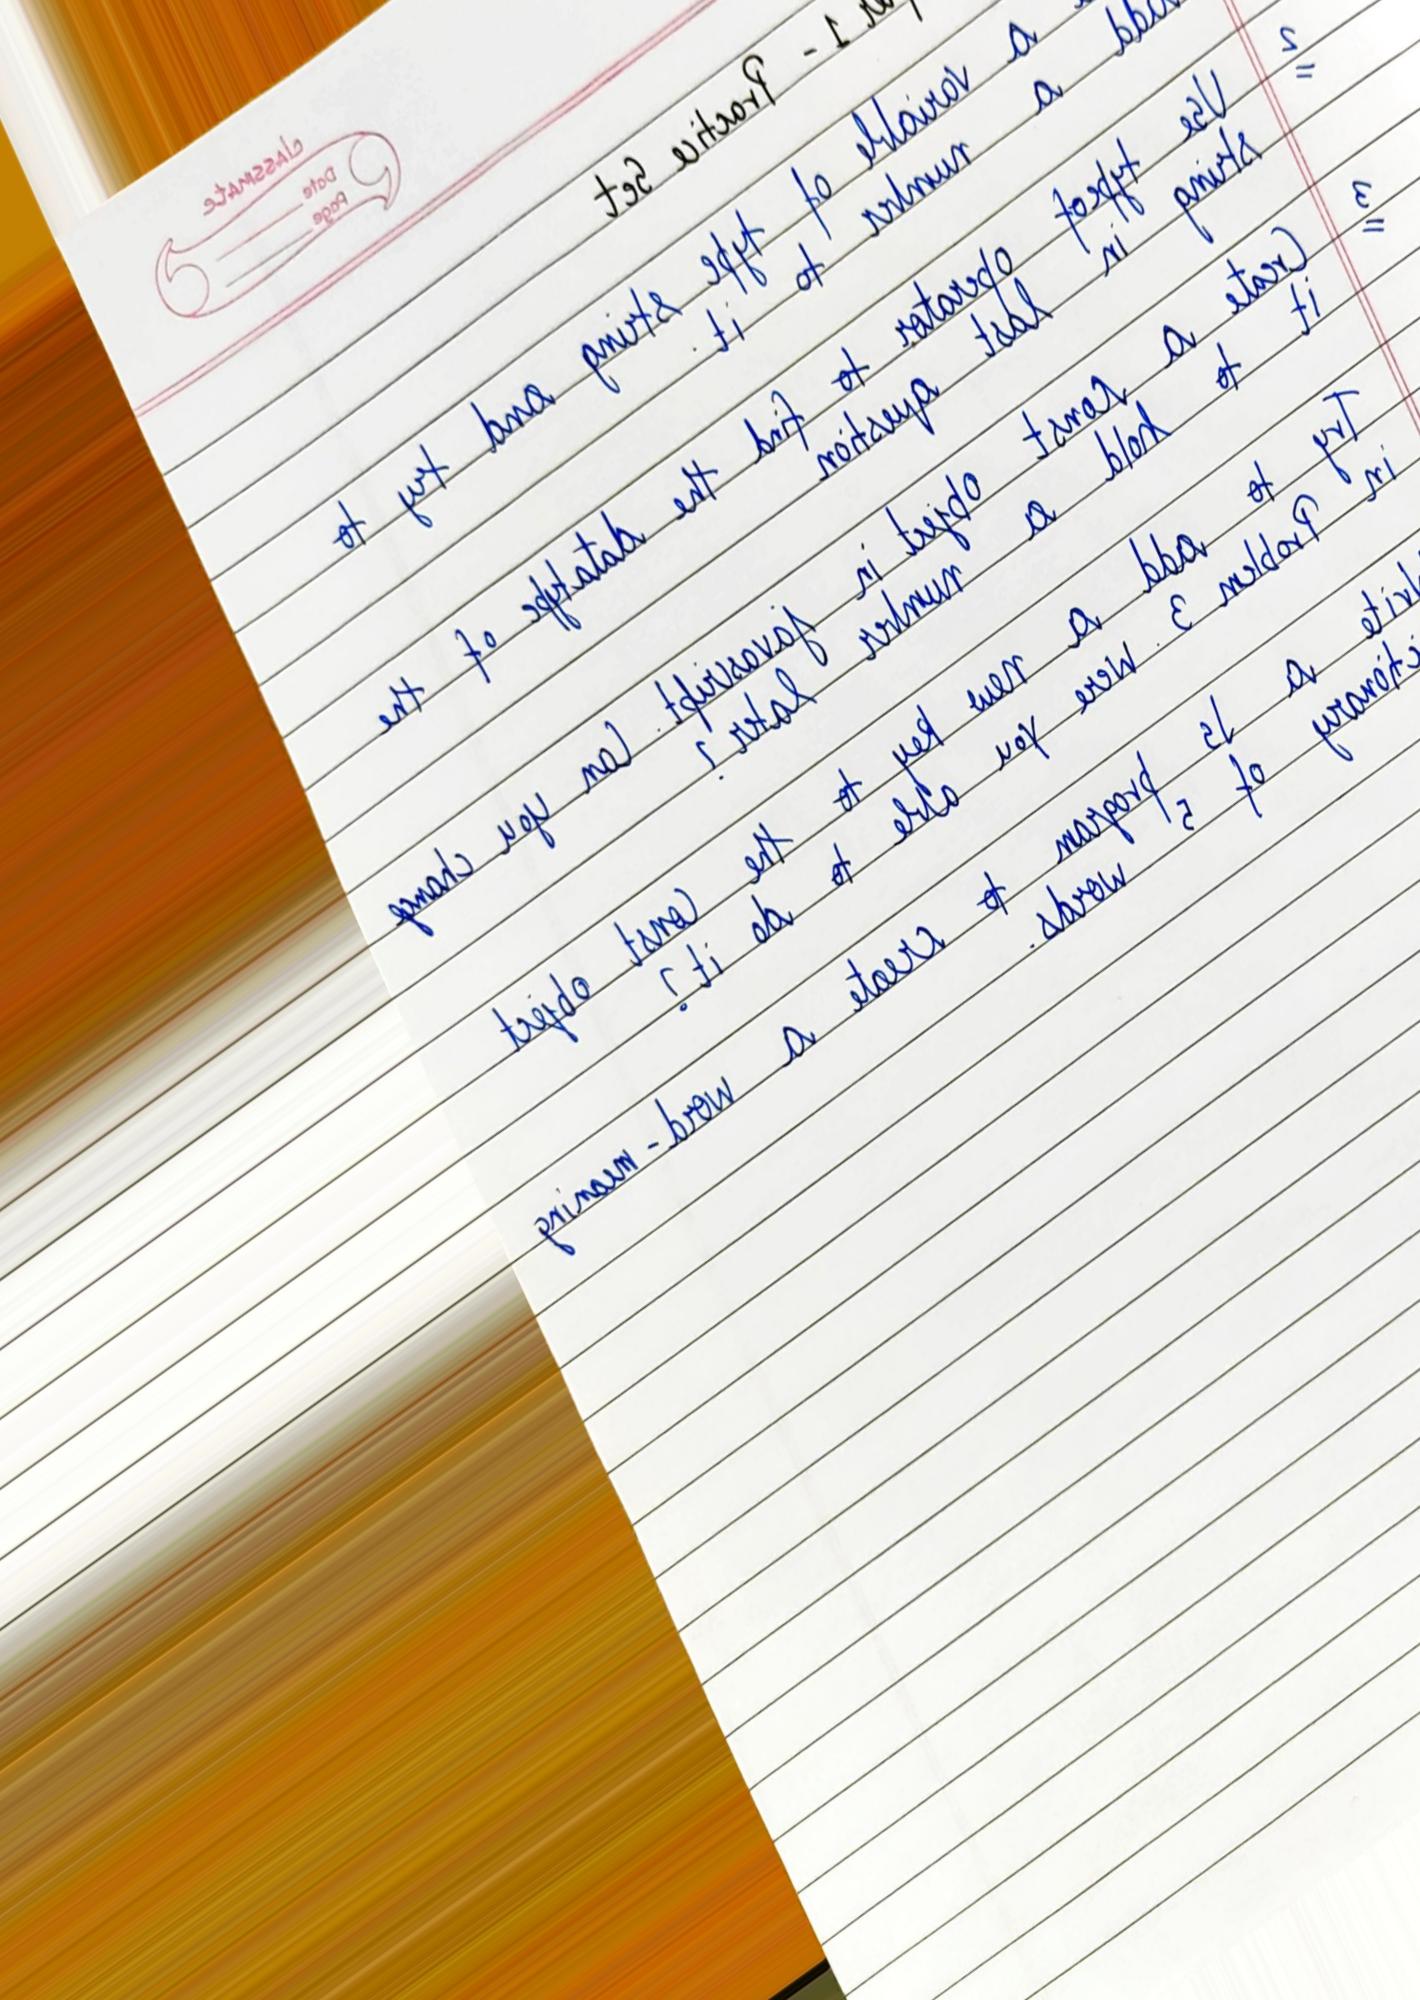 classmate
Date
Page
1 - Practice Set
a variable of type string and try to
add a number to it.
2
Use typeof operator to find the datatype of the
string in last question
3
Create a const object in javascript. Can you change
it to hold a number later?
Try to add a new key to the const object
in Problem 3. Were you able to do it?
a JS program to create a word-meaning
of 5 words.